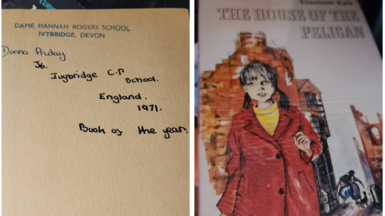 DAME HANNAH ROGERS SCHOOL,
IVYBRIDGE, DEVON
Donna Priday
J6.
Ivybridge C.P
School.
England.
1971.
Book of the year.
Elisabeth Kyle
THE HOUSE OF THE
PELICAN